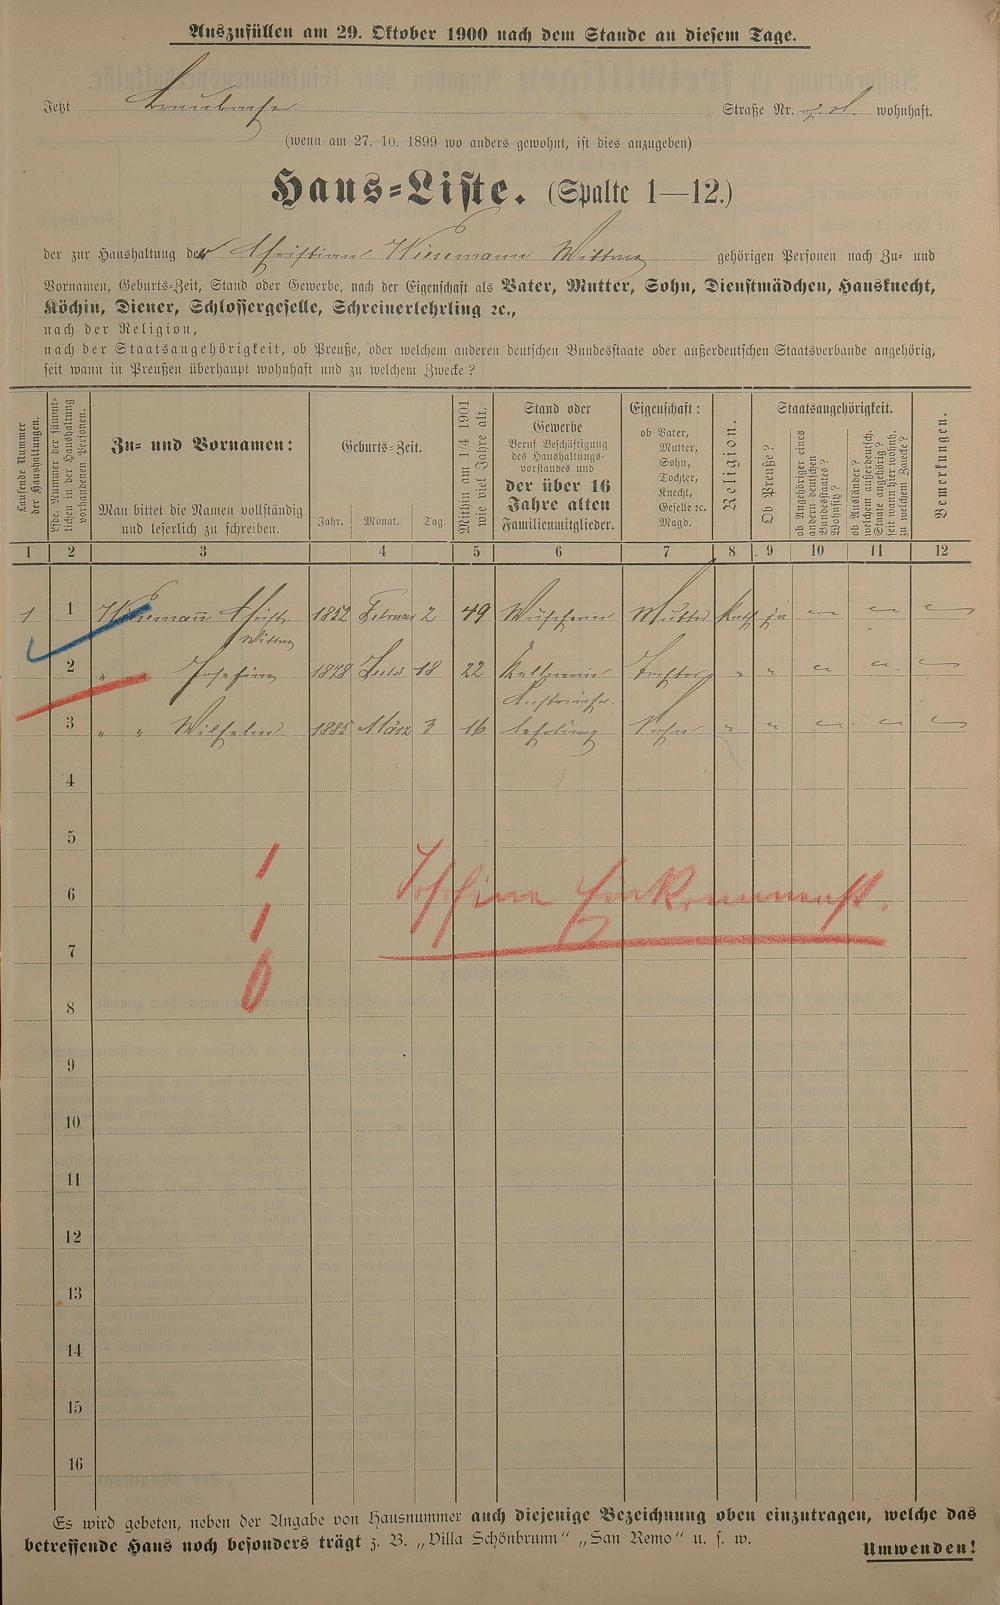 Auszufüllen am 29. Oktober 1900 nach dem Stande an diesem Tage.
Jetzt Straße Nr. wohnhaft.
(wenn am 27. 10. 1899 wo anders gewohnt, ist dies anzugeben)
Haus-Liste. (Spalte 1—12.)
der zur Haushaltung der Christian Wiesemann Wittwe gehörigen Personen nach Zu- und
Vornamen, Geburts-Zeit, Stand oder Gewerbe, nach der Eigenschaft als Vater, Mutter, Sohn, Dienstmädchen, Hausknecht,
Köchin, Diener, Schlossergeselle, Schreinerlehrling ꝛc.,
nach der Religion,
nach der Staatsangehörigkeit, ob Preuße, oder welchem anderen deutschen Bundesstaate oder außerdeutschen Staatsverbande angehörig,
seit wann in Preußen überhaupt wohnhaft und zu welchem Zwecke?
Laufende Nummer der Haushaltungen.
Lfde. Nummer der sämmtlichen in der Haushaltung vorhandenen Personen.
Zu- und Vornamen:
Man bittet die Namen vollständig
und leserlich zu schreiben.
Geburts-Zeit.
Jahr. Monat. Tag.
Mithin am 1/4 1901 wie viel Jahre alt.
Stand oder
Gewerbe
Beruf Beschäftigung
des Haushaltungs-
vorstandes und
der über 16
Jahre alten
Familienmitglieder.
Eigenschaft:
ob Vater,
Mutter,
Sohn,
Tochter,
Knecht,
Geselle ꝛc.
Magd.
Religion.
Staatsangehörigkeit.
Ob Preuße?
ob Angehöriger eines andern deutschen Bundesstaates? Wohnsitz?
ob Ausländer? welchem außerdeutsch. Staate angehörig? seit wann hier wohnh. zu welchem Zwecke?
Bemerkungen.
1 2 3 4 5 6 7 8 9 10 11 12
1 1 Wiesemann Christ. 1852 Februar 2 49 Wäscherin Mutter Kath ja — — —
Wittwe
2 " Josefine 1878 18 22 Kellnerin Tochter " " — — —
Anstreicher-
3 " " Wilhelm 1885 März 3 16 lehrling Sohn " " — — —
4
5
6
7
8
1
1
0
Josefine Einkommenst.
9
10
11
12
13
14
15
16
Es wird gebeten, neben der Angabe von Hausnummer auch diejenige Bezeichnung oben einzutragen, welche das
betreffende Haus noch besonders trägt z. B. „Villa Schönbrunn" „San Remo" u. s. w.
Umwenden!